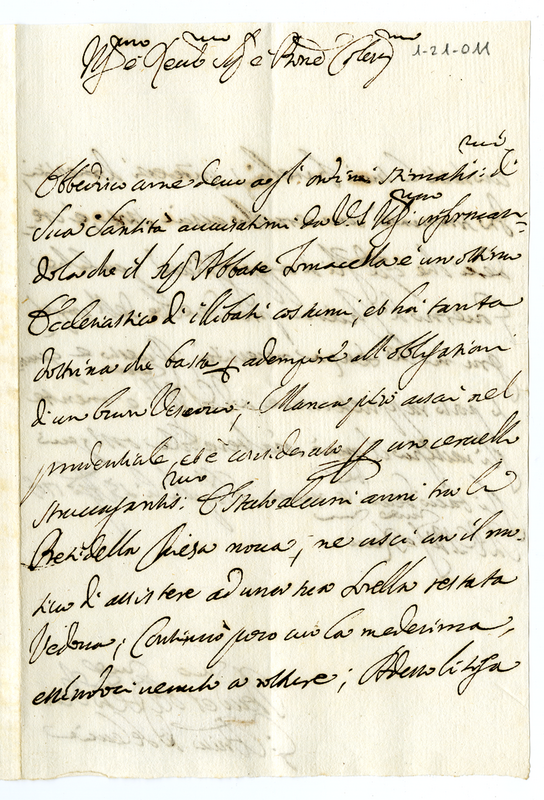 Ill.mo e Rev.mo Sig.r e P.rone Col.mo
1-21-011
Obbedisco come devo agl'ordini stimatis.mi di
Sua Santità avvisatimi da V.S. Ill.ma informan-
dola che il Sig.r Abbate Tomacella è un ottimo
Ecclesiastico di illibati costumi, et hà tanta
dottrina che basta p adempire all'obligationi
di un buon Vescovo; Manca però assai nel
prudentiale, et è considerato p un cervello
stravagantis.mo: È stato alcuni anni tra li
Preti della Chiesa nova, ne uscì con il mo-
tivo di assistere ad una sua Sorella restata
Vedova; Continuò poco con la medesima,
essendoci venuto a rotture; Adesso litiga